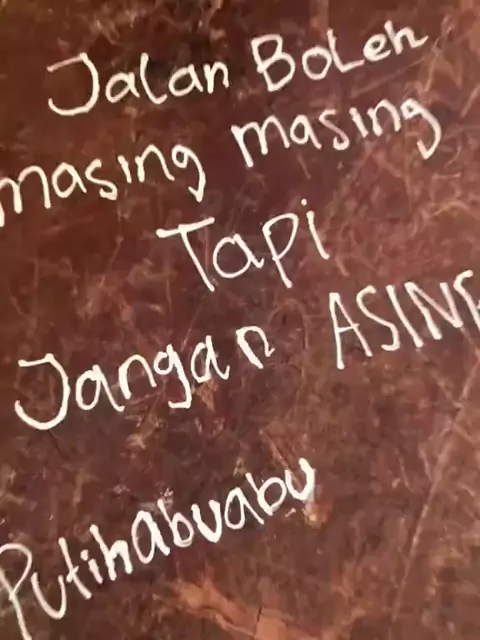 Jalan BoLeh
masing masing
Tapi
Jangan ASING
Putihabuabu